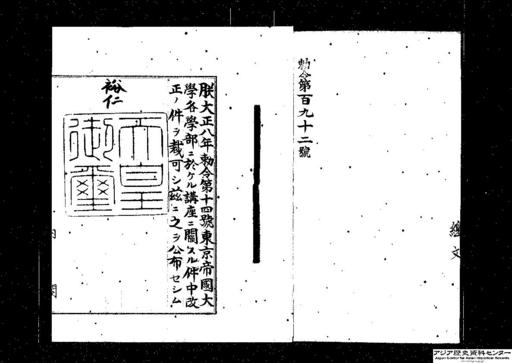 勅令第百九十二號
朕大正八年勅令第十四號東京帝國大
學各學部ニ於ケル講座ニ關スル件中改
正ノ件ヲ裁可シ茲ニ之ヲ公布セシム
裕仁
天皇
御璽
内
閣
アジア歴史資料センター
Japan Center for Asian Historical Records